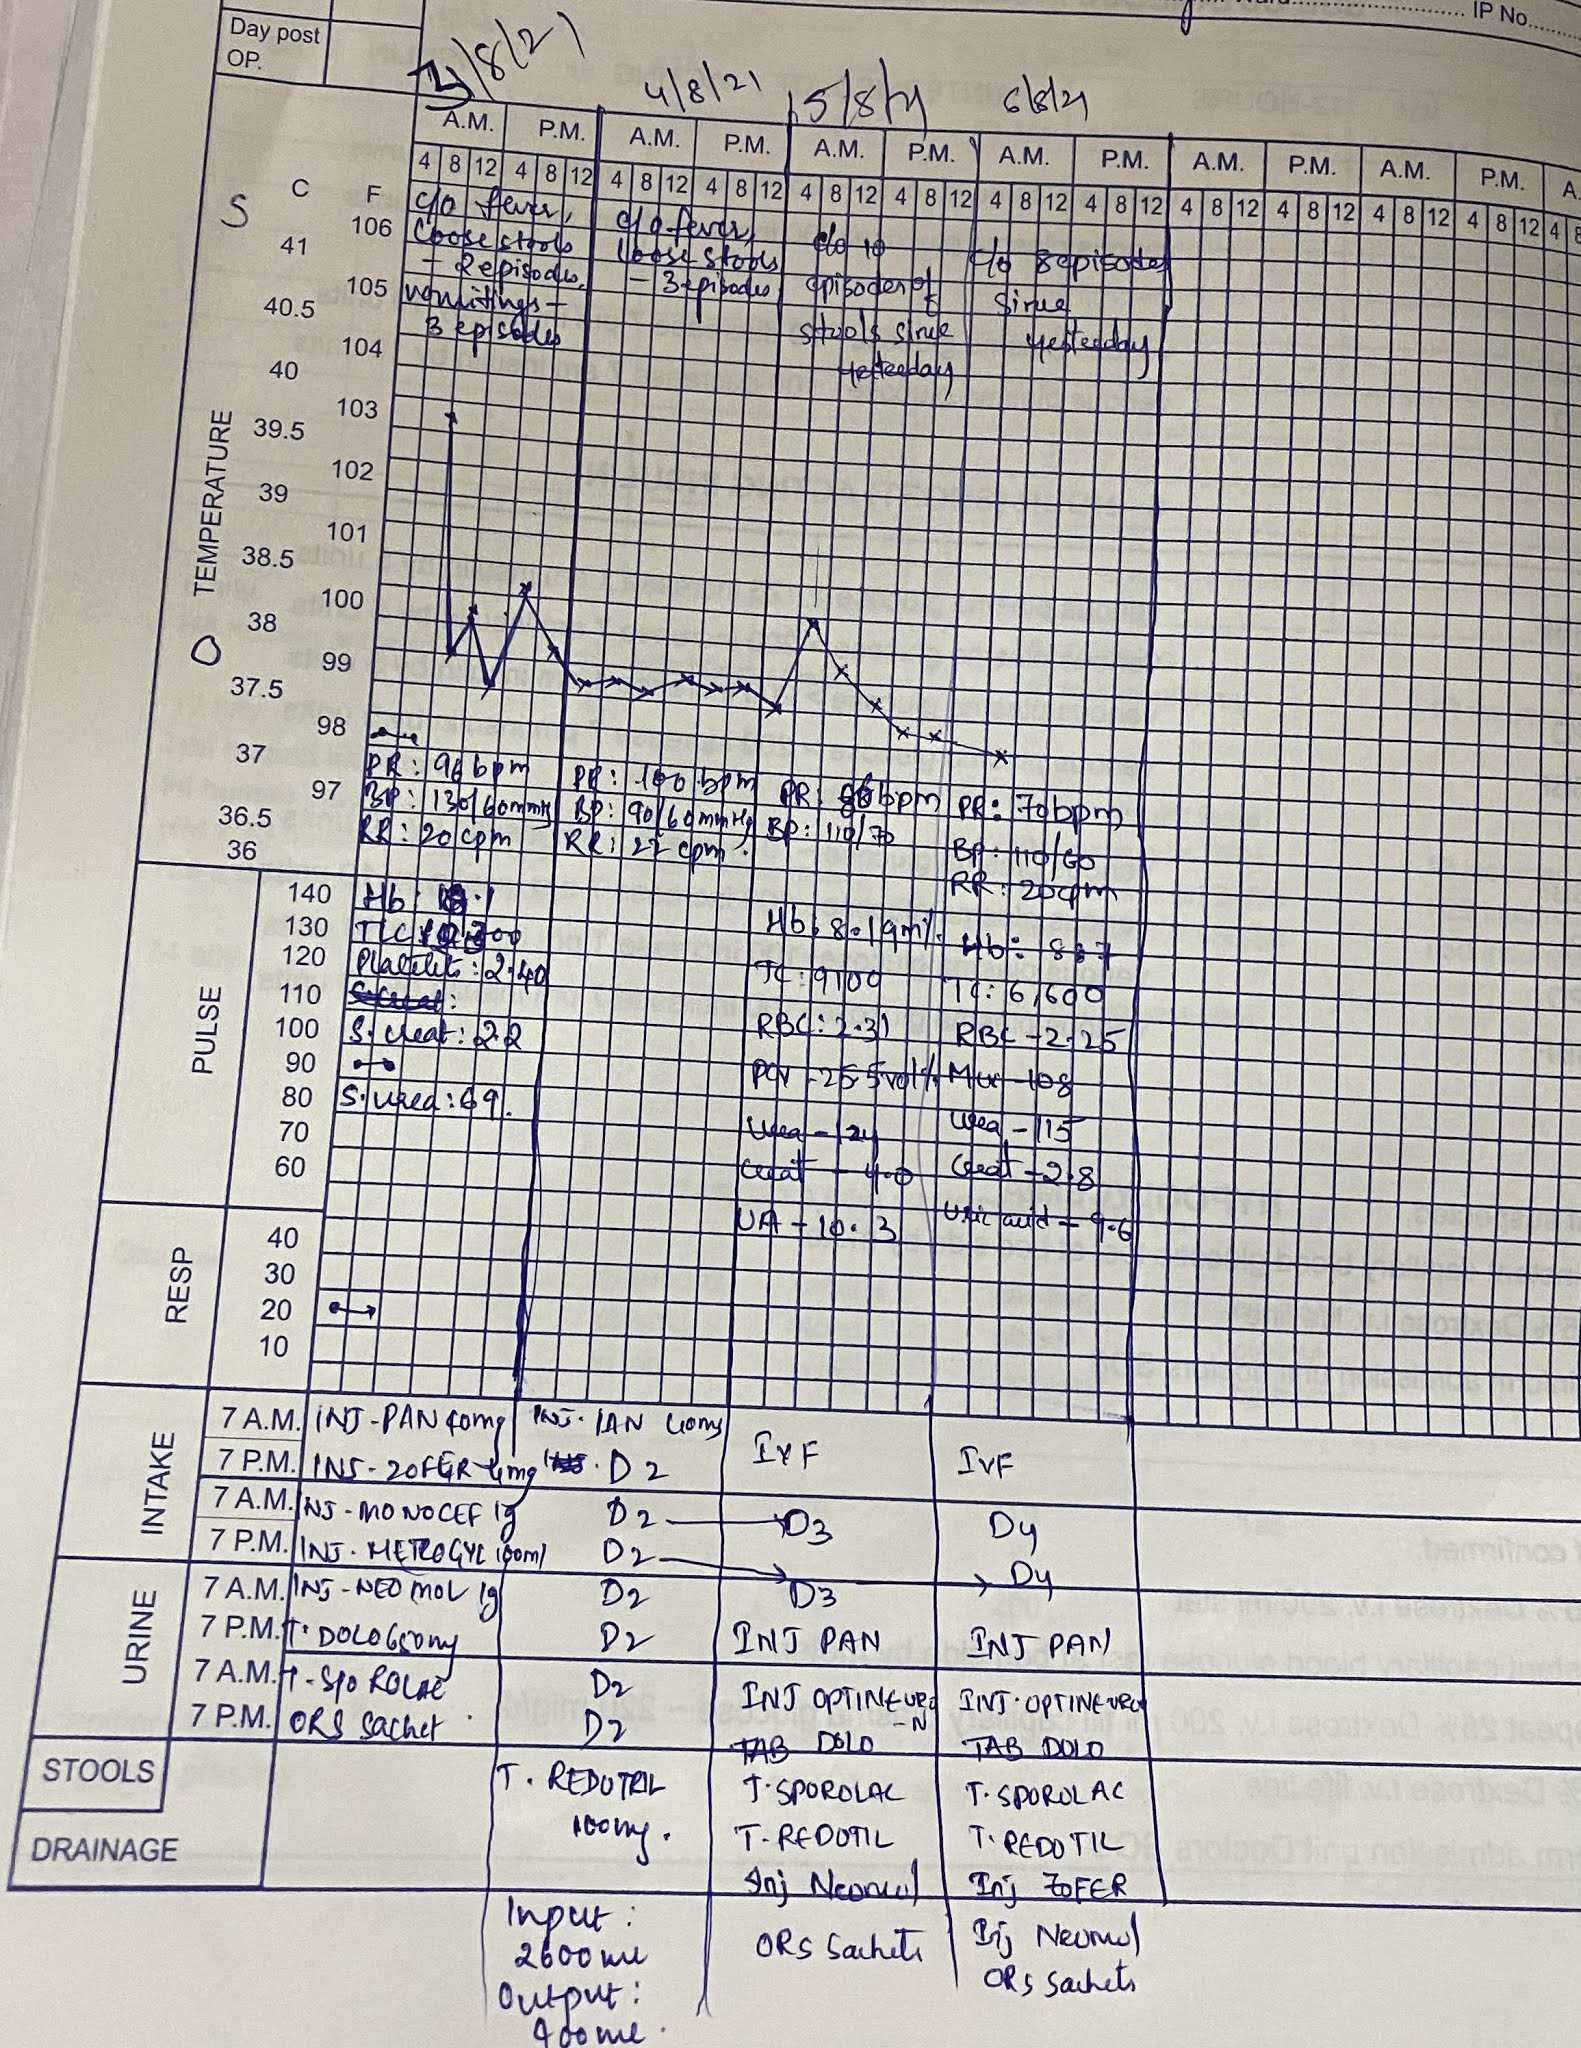 IP No.
Day post
OP.
3/8/21 4/8/21 5/8/21 6/8/21
A.M. P.M. A.M. P.M. A.M. P.M. A.M. P.M. A.M. P.M. A.M. P.M. A.
4 8 12 4 8 12 4 8 12 4 8 12 4 8 12 4 8 12 4 8 12 4 8 12 4 8 12 4 8 12 4 8 12 4 8 12 4 8
S
C F
TEMPERATURE
O
106
41
105
40.5
104
40
103
39.5
102
39
101
38.5
100
38
99
37.5
98
37
97
36.5
36
c/o fever,
Loose stools
- 2 episodes.
vomitings -
3 episodes
c/o fever,
loose stools
- 3 episodes
c/o 10
episodes of
stools since
yesterday
c/o 8 episodes
since
yesterday
PR: 96 bpm
BP: 130/60mmHg
RR: 20 cpm
PR: 100 bpm
BP: 90/60mmHg
RR: 22 cpm.
PR: bpm
BP: 110/70
PR: 70bpm
BP: 110/60
RR: 20cpm
PULSE
140
130
120
110
100
90
80
70
60
Hb:
TLC
Platelets: 2.40
S.creat: 2.2
S.urea: 69.
Hb: 8.1 gm%
TC: 9100
RBC: 2.31
PCV - 25.5 vol%
Urea - 124
Creat - 4.0
UA - 10.3
Hb:
TC: 6,600
RBC - 2.25
108
Urea - 115
Creat - 2.8
Uric acid - 9.6
RESP
40
30
20
10
INTAKE
7 A.M.
7 P.M.
7 A.M.
7 P.M.
URINE
7 A.M.
7 P.M.
7 A.M.
7 P.M.
STOOLS
DRAINAGE
INJ-PAN 40mg
INJ-ZOFER 4mg
INJ-MONOCEF 1g
INJ-METROGYL 100ml
INJ-NEOMOL 1g
T.DOLO 650mg
T-SPOROLAC
ORS Sachet
INJ. PAN 40mg
D2
D2
D2
D2
D2
D2
D2
T. REDOTRIL
100mg.
Input:
2600 ml
Output:
400 ml.
IVF
D3
D3
INJ PAN
INJ OPTINEURO
-N
TAB DOLO
T.SPOROLAC
T-REDOTIL
Inj Neomol
ORS Sachets
IVF
D4
D4
INJ PAN
INJ.OPTINEURO
TAB DOLO
T.SPOROLAC
T.REDOTIL
Inj ZOFER
Inj Neomol
ORS Sachets